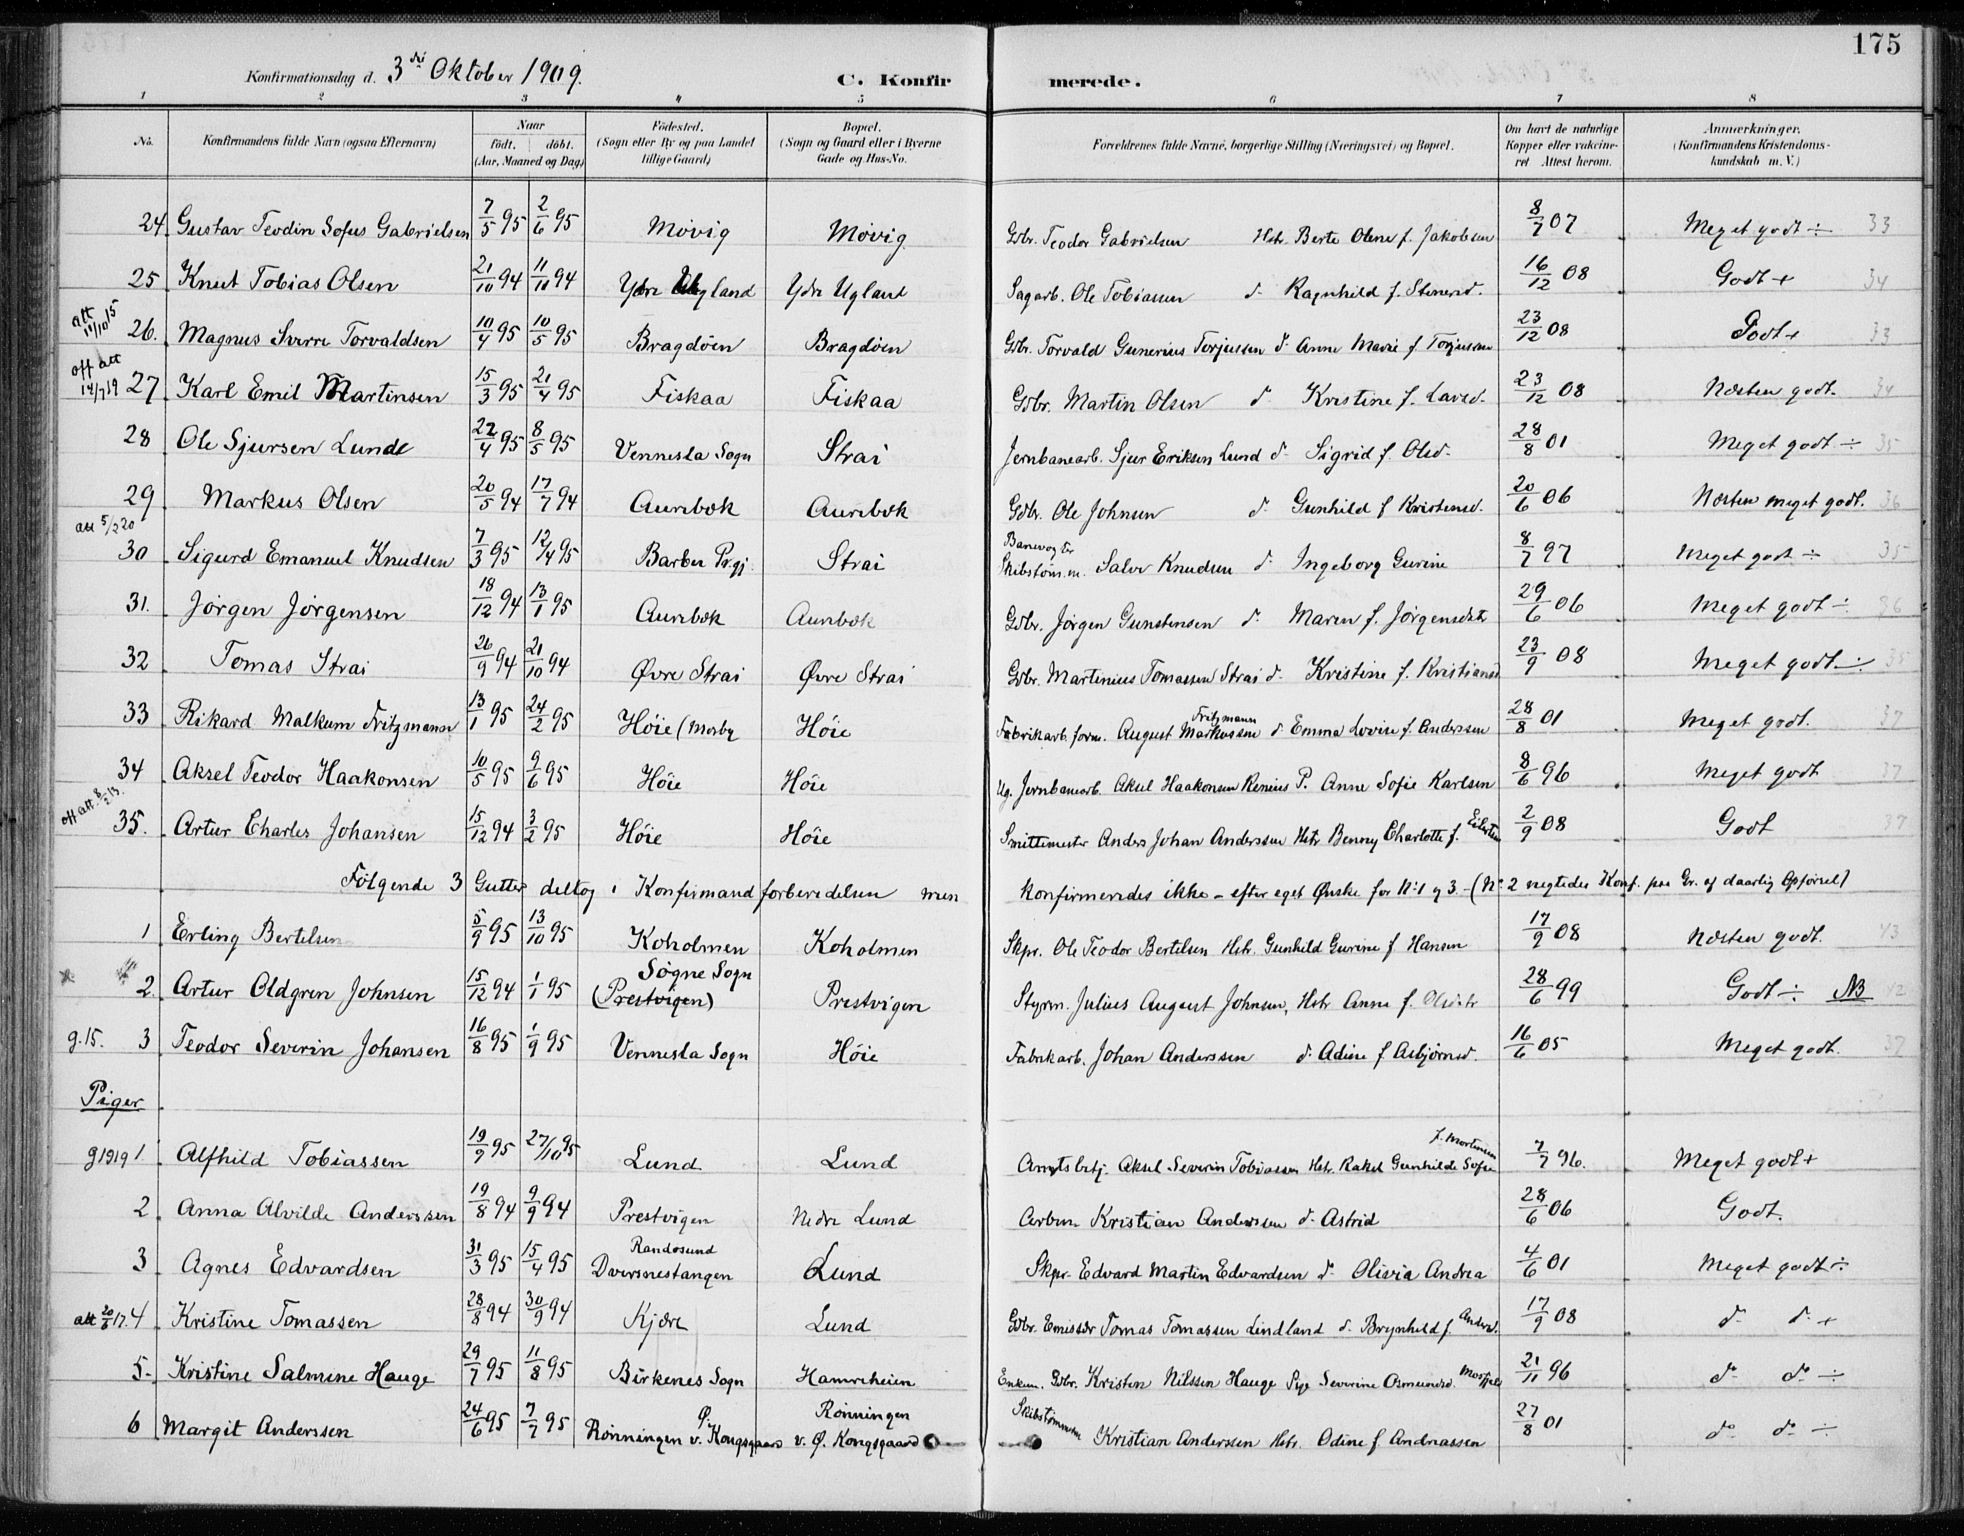 175
Konfirmationsdag d. 3di Oktober 1909. C. Konfirmerede.
1 2 3 4 5 6 7 8
No. Konfirmandens fulde Navn (ogsaa Efternavn) Naar født. døbt. (Aar, Maaned og Dag) Fødested. (Sogn eller By og paa Landet tillige Gaard) Bopæl. (Sogn og Gaard eller i Byerne Gade og Hus-No. Forældrenes fulde Navne, borgerlige Stilling (Næringsvei) og Bopæl. Om havt de naturlige Kopper eller vaccineret Attest herom. Anmærkninger, (Konfirmandens Kristendomskundskab m. V.)
24 Gustav Teodin Sofus Gabrielsen 7/5 95 2/6 95 Movig Movig Gbr. Teodor Gabrielsen Hstr. Berte Olene f. Jakobsen 8/7 07 Meget godt ÷ 33
25 Knut Tobias Olsen 21/10 94 11/11 94 Ydre Ugland Ydre Ugland Sagarb. Ole Tobiassen d- Ragnhild f. Stenersd. 16/12 08 Godt + 34
att 11/10 15 26. Magnus Sverre Torvaldsen 10/4 95 10/5 95 Bragdøen Bragdøen Gbr. Torvald Gunerius Torjussen d- Anne Marie f. Torjussen 23/12 08 Godt + 33
off att 14/7 19 27 Karl Emil Martinsen 15/3 95 21/4 95 Fiskaa Fiskaa Gbr. Martin Olsen d- Kristine f. Larsd. 23/12 08 Næsten godt. 34
28 Ole Sjursen Lunde 22/4 95 8/5 95 Vennesla Sogn Strai Jernbanearb. Sjur Eriksen Lund d- Sigrid f. Olsd- 28/8 01 Meget godt ÷ 35
29 Markus Olsen 20/5 94 17/7 94 Aurebæk Aurebæk Gbr. Ole Johnsen d- Gunhild f Kristensd. 20/6 06 Næsten meget godt. 36
att 5/2 20 30 Sigurd Emanuel Knudsen 7/3 95 12/4 95 Barbu Prgj. Strai Banevogter Skibstøm.m. Salve Knudsen d- Ingeborg Gurine 8/7 97 Meget godt ÷ 35
31. Jörgen Jörgensen 18/12 94 13/1 95 Aurebæk Aurebæk Gbr. Jörgen Gunstensen d- Maren f. Jörgensdtr 29/6 06 Meget godt ÷ 36
32 Tomas Strai 26/9 94 21/10 94 Øvre Strai Øvre Strai Gbr. Martinius Tomassen Strai d- Kristine f. Kristiansd 23/9 08 Meget godt ÷ 35
33 Rikard Malkum Fritzmann 13/1 95 24/2 95 Höie (Mosby Höie Fabrikarb. form. August Markussen Fritzmann d Emma Lovise f. Anderssen 28/8 01 Meget godt. 37
34 Aksel Teodor Haakonsen 10/5 95 9/6 95 Höie Höie Ug. Jernbanearb. Aksel Haakonsen Renius P. Anne Sofie Karlsen 8/6 96 Meget godt 37
off att. 8/2 13. 35. Artur Charles Johansen 15/12 94 3/2 95 Höie Höie Smittemester Anders Johan Anderssen Hstr Benny Charlotte f. 2/9 08 Godt 37
Fölgende 3 Gutter deltog i Konfirmandforberedelsen men konfirmeredes ikke - efter eget Ønske for No 1 og 3. - (No 2 negtedes Konf. paa Gr. af daarlig Opførsel)
1 Erling Bertelsen 5/9 95 13/10 95 Koholmen Koholmen Skpr. Ole Teodor Bertelsen Hstr. Gunhild Gurine f Hansen 17/9 08 Næsten godt. 43
2. Artur Oldgren Johnsen 15/12 94 1/1 95 Søgne Sogn (Prestvigen) Prestvigen Styrm. Julius August Johnsen, Hstr Anne f. Olsdtr 28/6 99 Godt ÷ NB 42
g.15. 3 Teodor Severin Johansen 16/8 95 1/9 95 Vennesla Sogn Höie Fabrikarb. Johan Anderssen d- Adine f Asbjørnsd. 16/6 05 Meget godt. 37
Piger
g1919 1. Alfhild Tobiassen 19/9 95 27/10 95 Lund Lund Amtsbetj. Aksel Severin Tobiassen Hstr. Rakel Gunhilde Sofie f. Mortensen 7/7 96. Meget godt +
2 Anna Alvilde Anderssen 19/8 94 9/9 94 Prestvigen Nedre Lund Arbm Kristian Anderssen d- Astrid 28/6 06 Godt.
3 Agnes Edvardsen 31/3 95 15/4 95 Randøsund Dversnestangen Lund Skpr. Edvard Martin Edvardsen d- Olivia Andrea 4/6 01 Meget godt ÷
att 20/6 17. 4 Kristine Tomassen 28/8 94 30/9 94 Kjære Lund Gbr. Emissær Tomas Tomassen Lindland d. Brynhild f. Andersd. 17/9 08 d- d- +
5. Kristine Salmine Hauge 29/7 95 11/8 95 Birkenes Sogn Hamreheien Enkem. Gbr. Kristen Nilssen Hauge Pige Severine Osmundsd. 21/11 96 do do ÷
6 Margit Anderssen 24/6 95 7/7 95 Rönningen v. Ø. Kongsgaard Rönningen v. Ø. Kongsgaard Skibstømmerm Kristian Anderssen Hstr. Odine f Andreassen 27/8 01 do do ÷